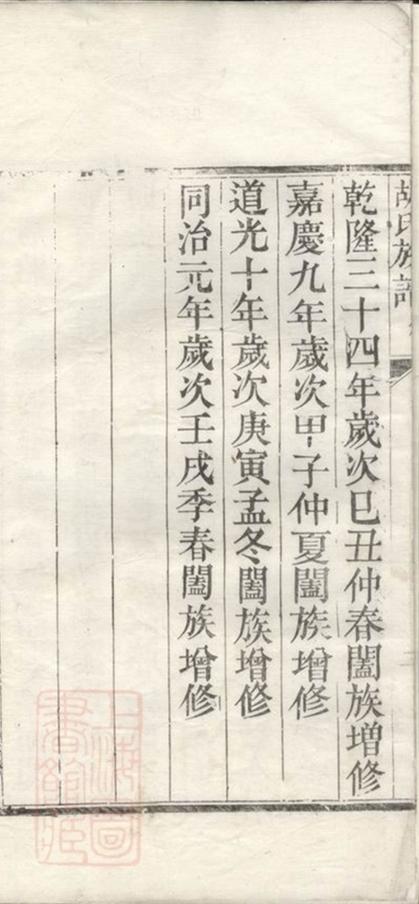 胡氏族譜
乾隆三十四年歲次巳丑仲春闔族增修
嘉慶九年歲次甲子仲夏闔族增修
道光十年歲次庚寅孟冬闔族增修
同治元年歲次壬戌季春闔族增修
上海圖
書館藏